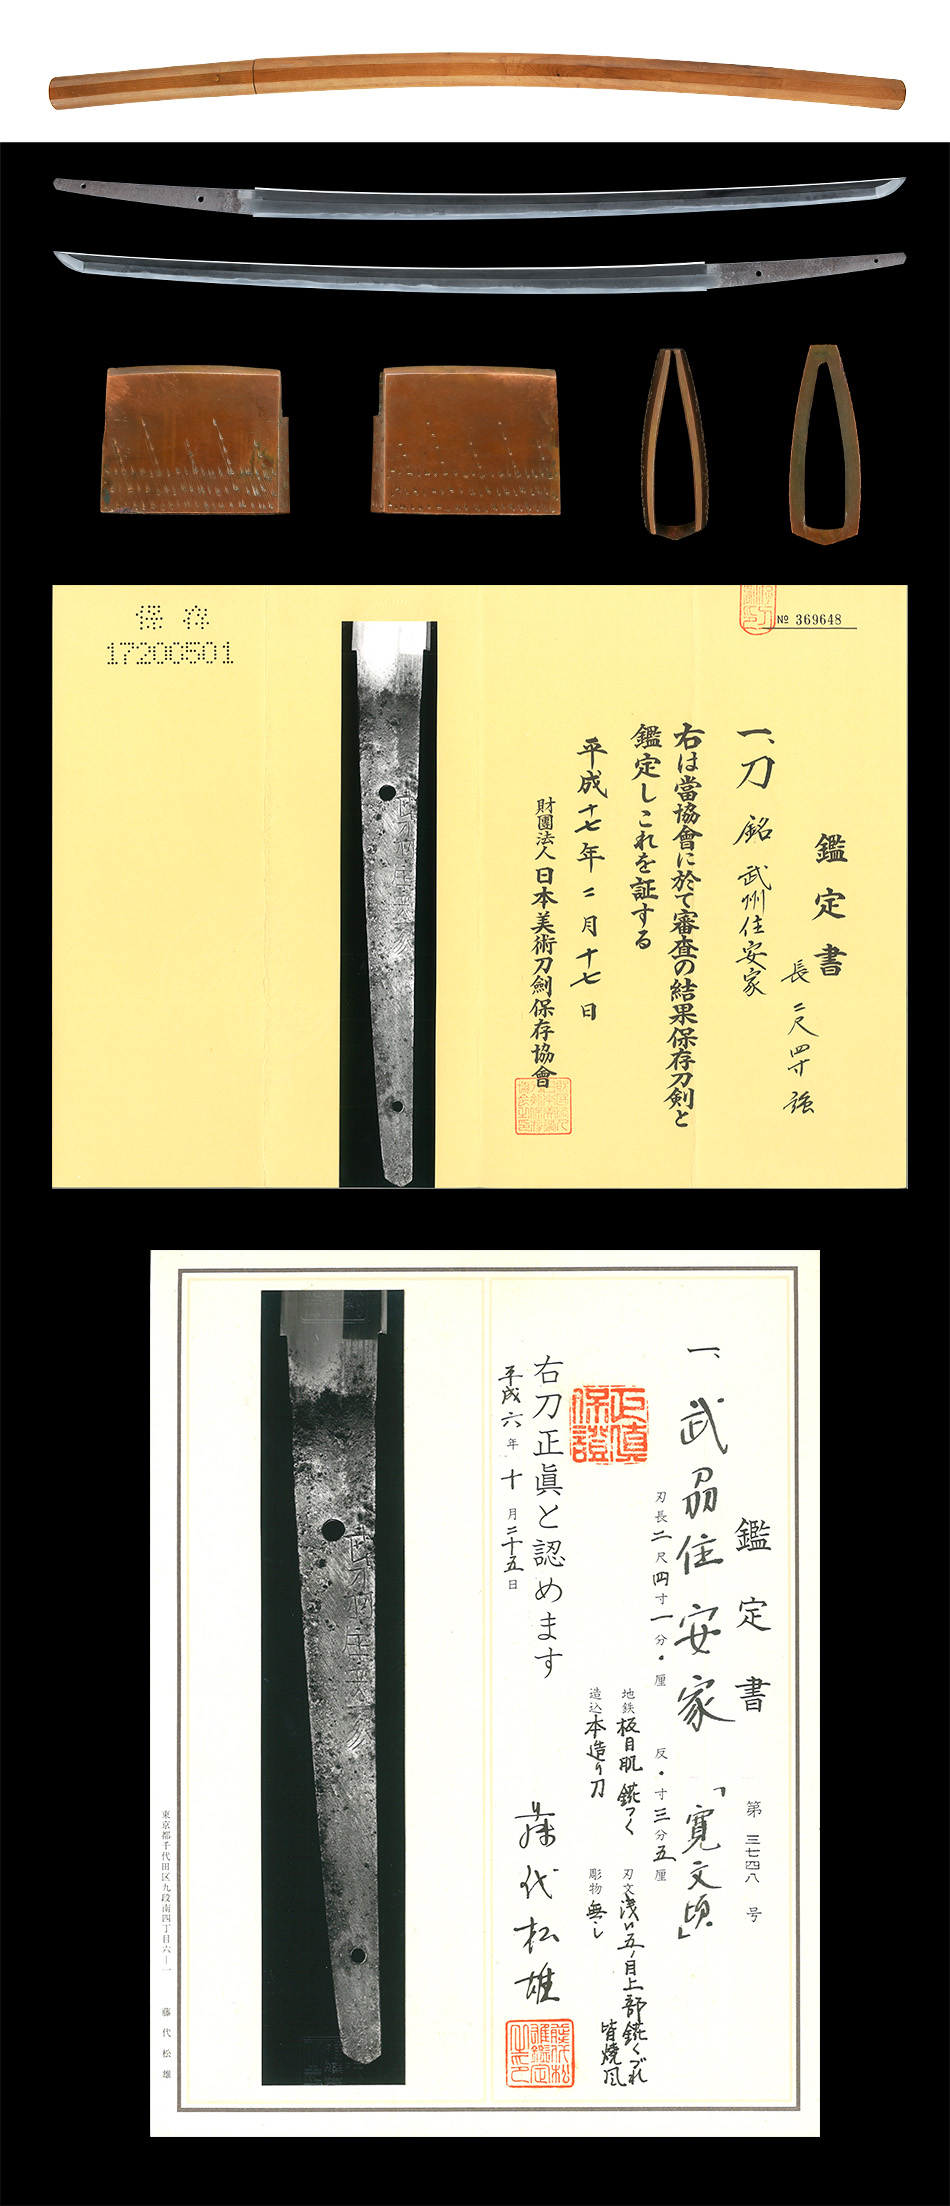 保存
17200501
№ 369648
鑑定書
長 二尺四寸強
一、刀 銘 武州住安家
右は當協會に於て審査の結果保存刀剣と
鑑定しこれを証する
平成十七年二月十七日
財團法人日本美術刀劍保存協會
鑑定書
第三七四八号
一、武刕住安家「寛文頃」
刃長二尺四寸一分・厘 反・寸三分五厘
地鉄 板目肌 錵つく 刃文 浅い五ノ目上部錵くづれ
皆焼風
造込 本造り刀 彫物 無し
正真保證
右刀正眞と認めます
平成六年十月二十五日
藤代松雄
東京都千代田区九段南四丁目六ー一 藤代松雄